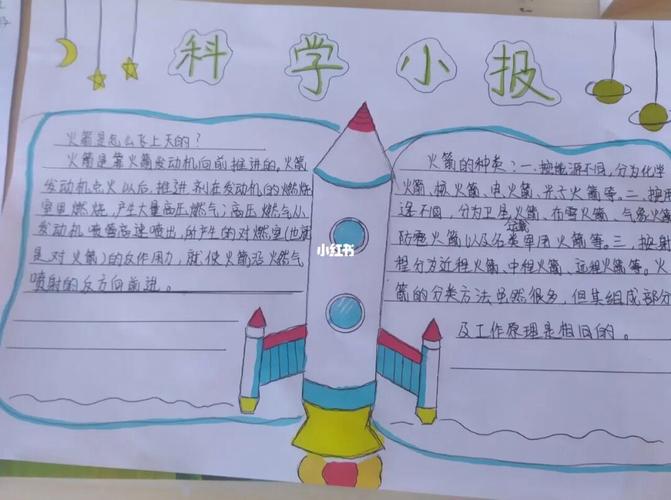 科学小报
火箭是怎么飞上天的？
火箭是靠火箭发动机向前推进的。火箭
发动机点火以后，推进剂在发动机的燃烧
室里燃烧，产生大量高压燃气；高压燃气从
发动机喷管高速喷出，所产生的对燃室（也就
是对火箭）的反作用力，就使火箭沿燃气
喷射的反方向前进。
火箭的种类：一、按能源不同，分为化学
火箭、核火箭、电火箭、光子火箭等。二、按用
途不同，分为卫星火箭、布雷火箭、气象火箭
防雹火箭以及各类军用火箭等。三、按射
程分为近程火箭、中程火箭、远程火箭等。火
箭的分类方法虽然很多，但其组成部分
及工作原理是相同的。
小红书